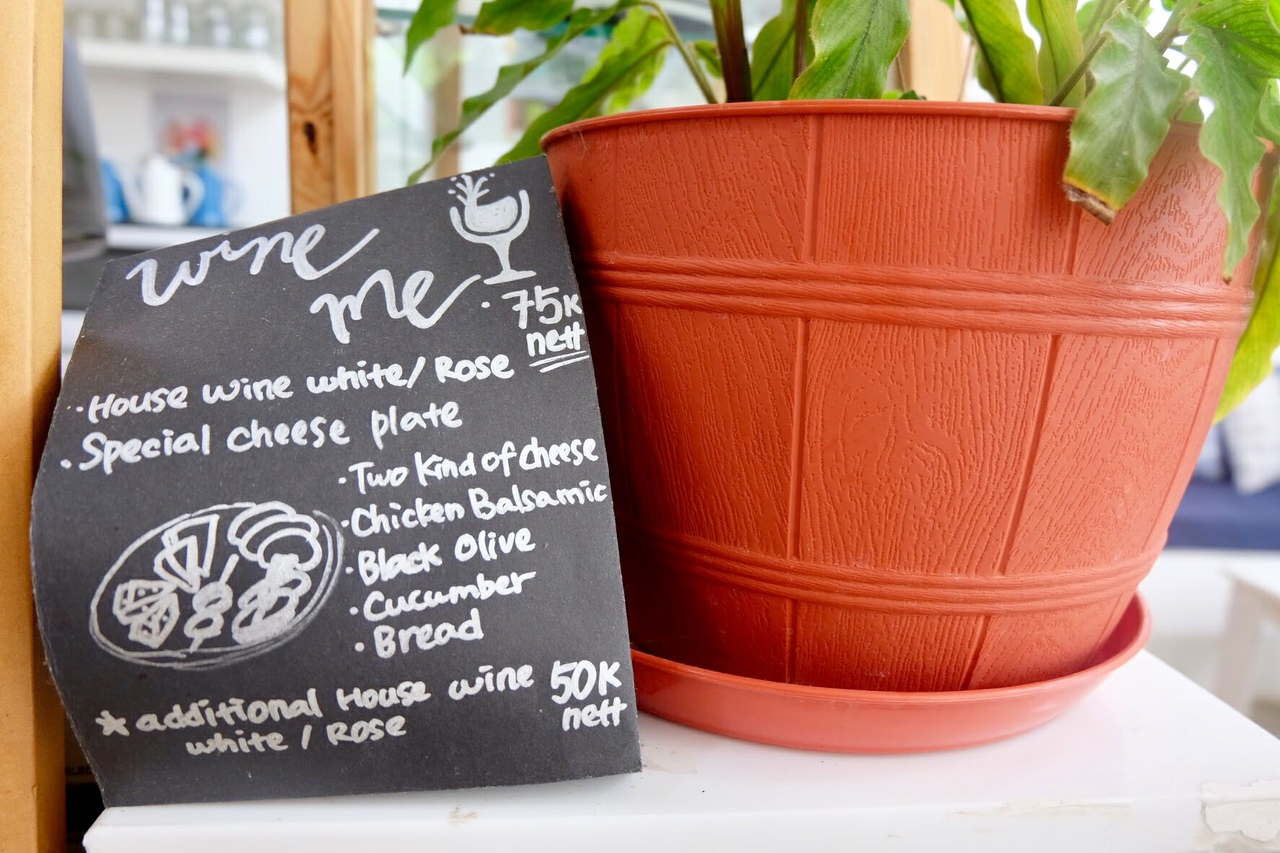 wine
me
· 75K
nett
· House wine white/ Rose
· Special cheese plate
· Two Kind of cheese
· Chicken Balsamic
· Black Olive
· Cucumber
· Bread
* additional House wine 50K
white / Rose nett